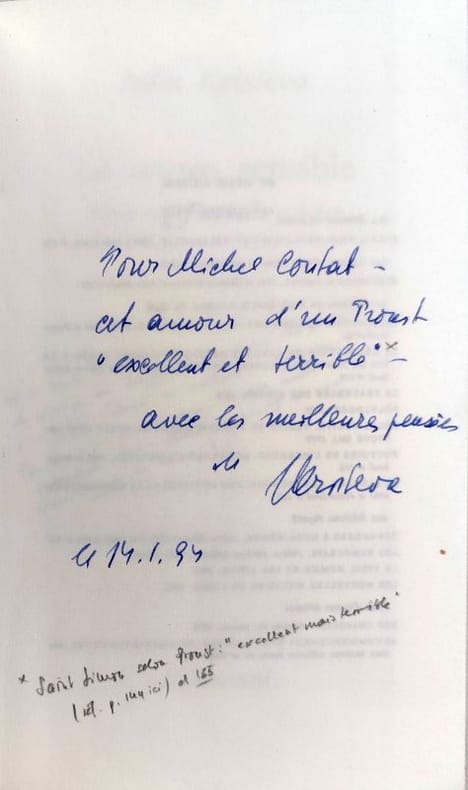 Pour Michel Contat –
cet amour d'un Proust
"excellent et terrible" x –
avec les meilleures pensées
de Kristeva
le 14.1.94
x Saint Simon selon Proust : "excellent mais terrible"
(p. 144 ici) et 165